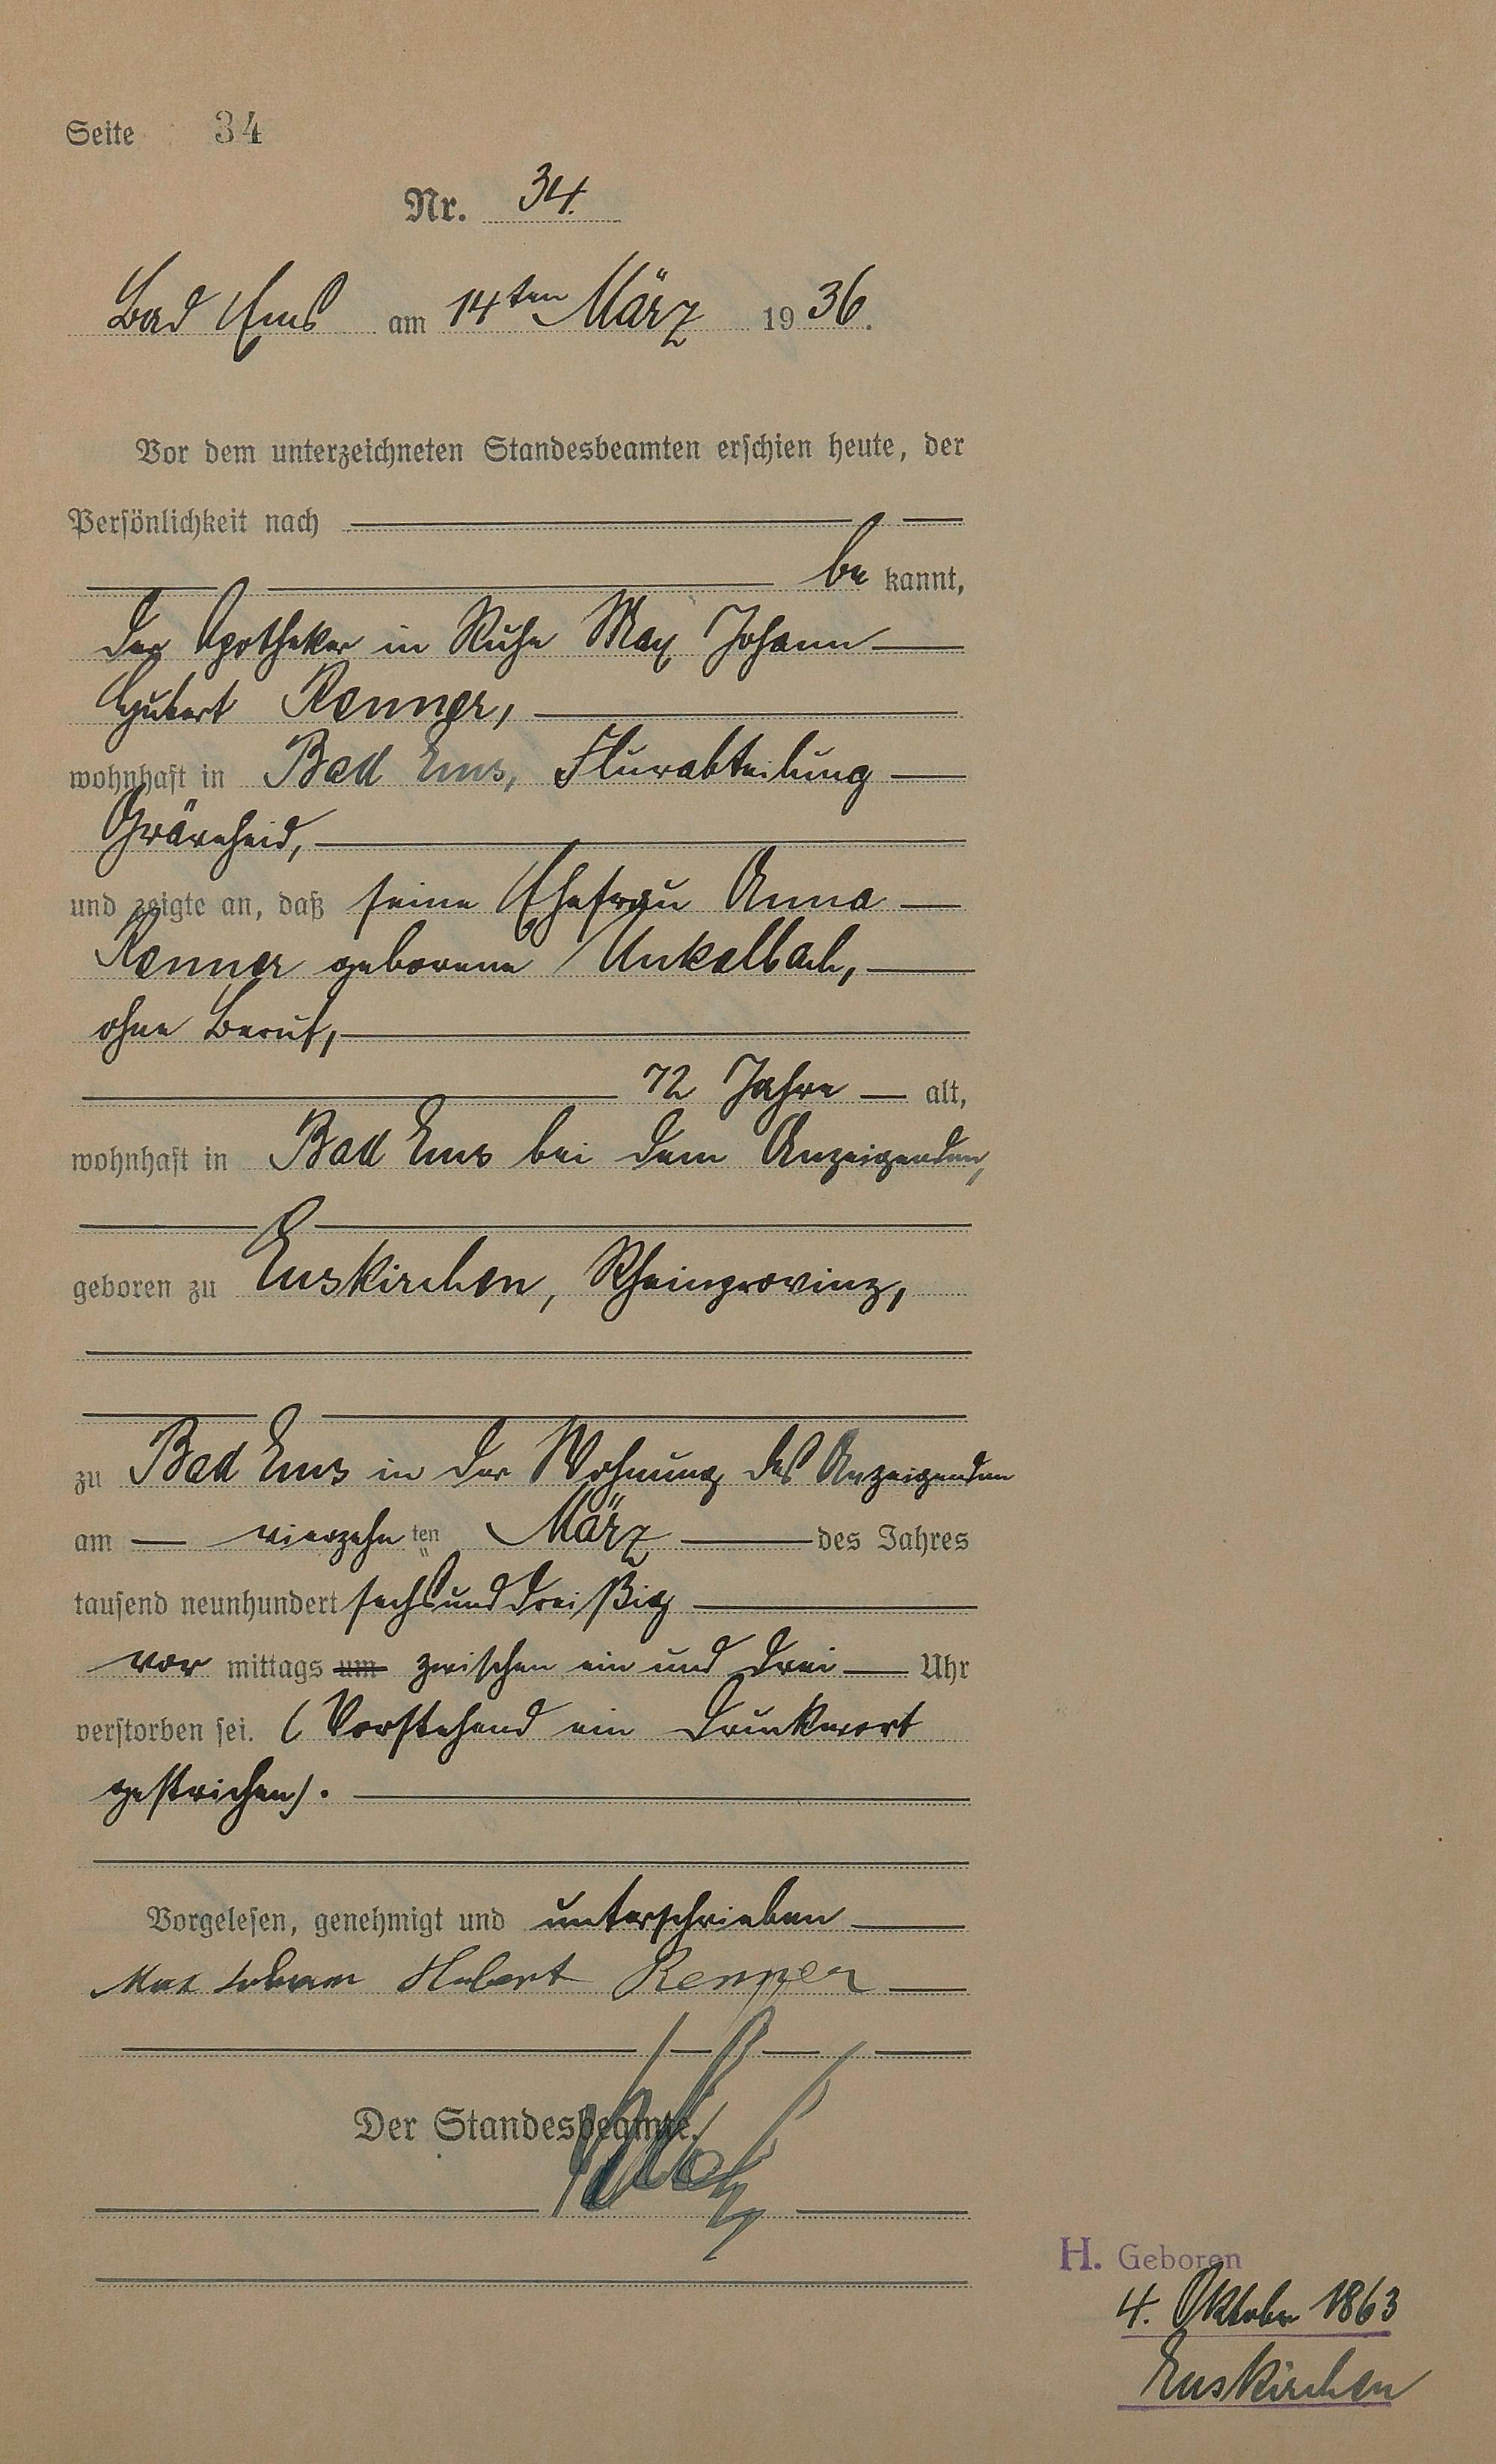 Seite 34
Nr. 34.
Bad Ems am 14ten März 1936.
Vor dem unterzeichneten Standesbeamten erschien heute, der
Persönlichkeit nach
be kannt,
der Apotheker in Ruhe Max Johann
Hubert Renner,
wohnhaft in Bad Ems, Flurabteilung
und zeigte an, daß seine Ehefrau Anna
Renner geborene Unkelbach,
ohne Beruf,
72 Jahre alt,
wohnhaft in Bad Ems bei dem Anzeigenden,
geboren zu Euskirchen, Rheinprovinz,
zu Bad Ems in der Wohnung des Anzeigenden
am vierzehnten März des Jahres
tausend neunhundert sechsunddreißig
vor mittags um zwischen ein und drei Uhr
verstorben sei. (Vorstehend ein Druckwort
gestrichen).
Vorgelesen, genehmigt und unterschrieben
Max Johann Hubert Renner
Der Standesbeamte.
H. Geboren
4. Oktober 1863
Euskirchen